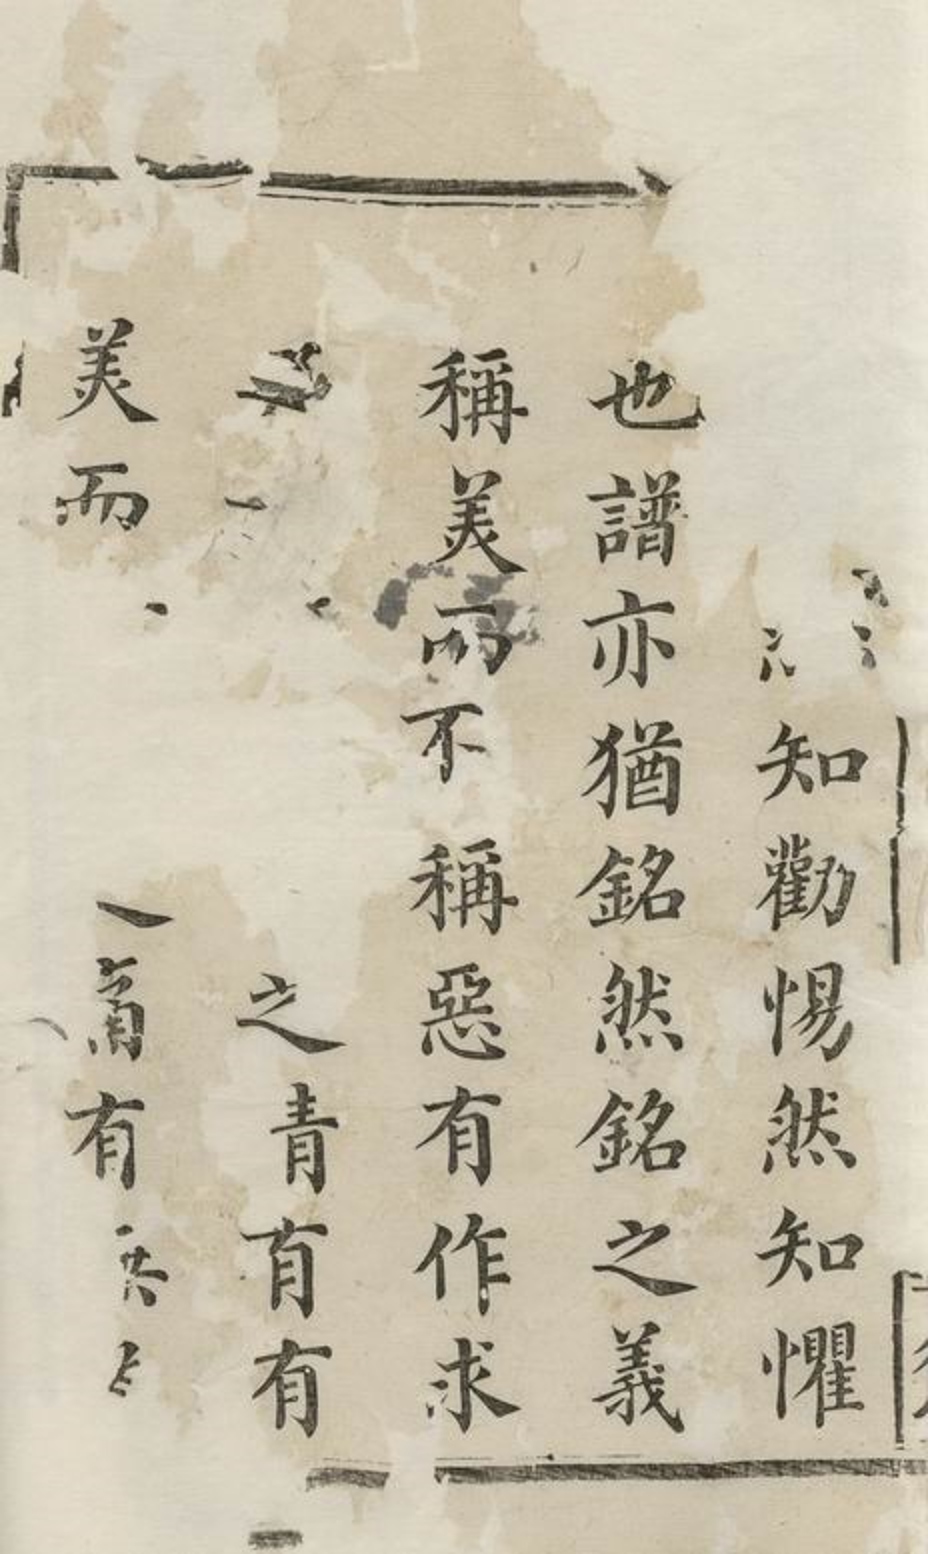 知勸惕然知懼
也譜亦猶銘然銘之義
稱美而不稱惡有作求
之青有
美而有